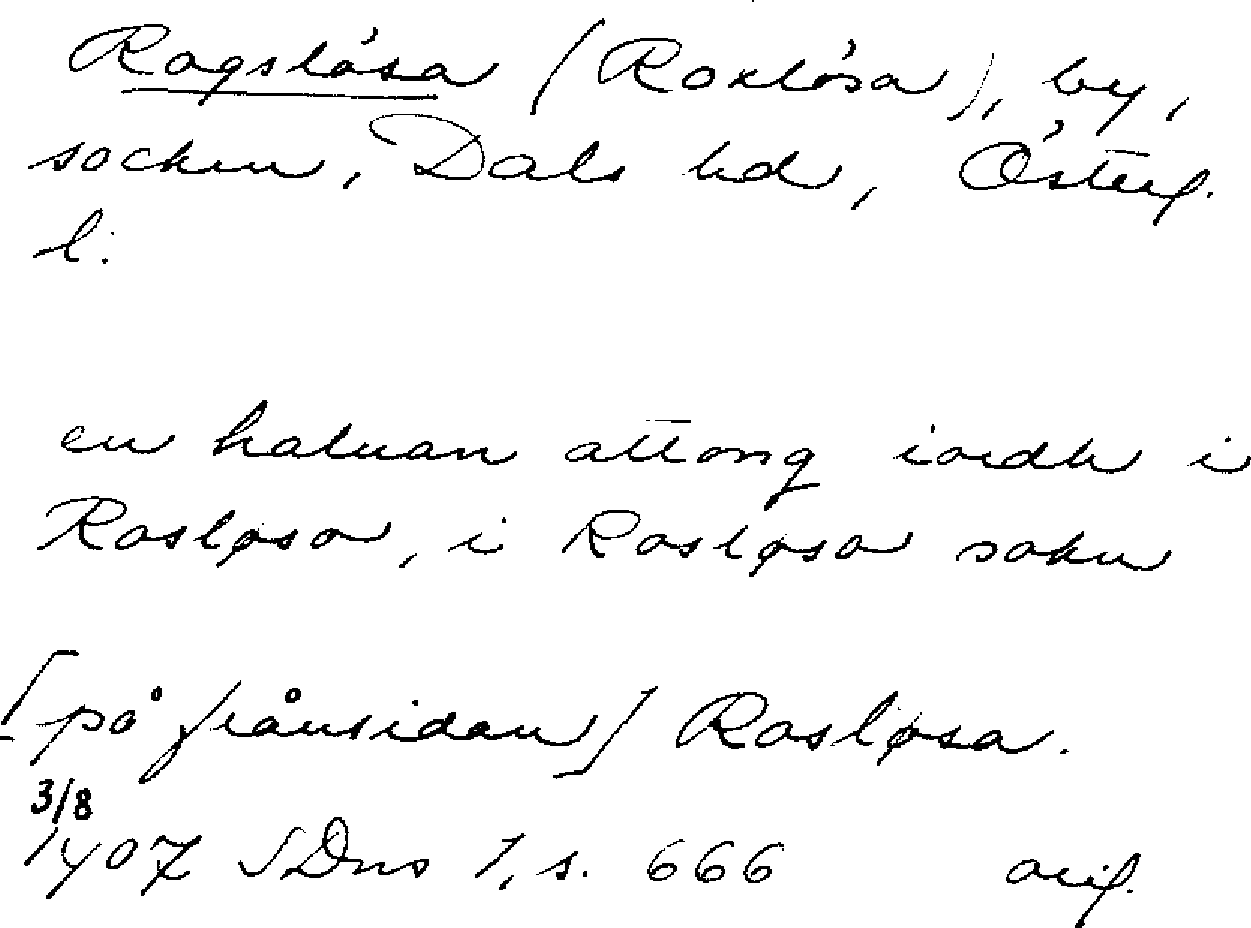 Rogslösa (Roxlösa), by,
socken, Dals hd, Österg.
l.
en haluan attong iordh i
Rosløso, i Rosløso sokn
[på frånsidan] Rosløsa.
3/8
1407 SDns 1, s. 666 orig.